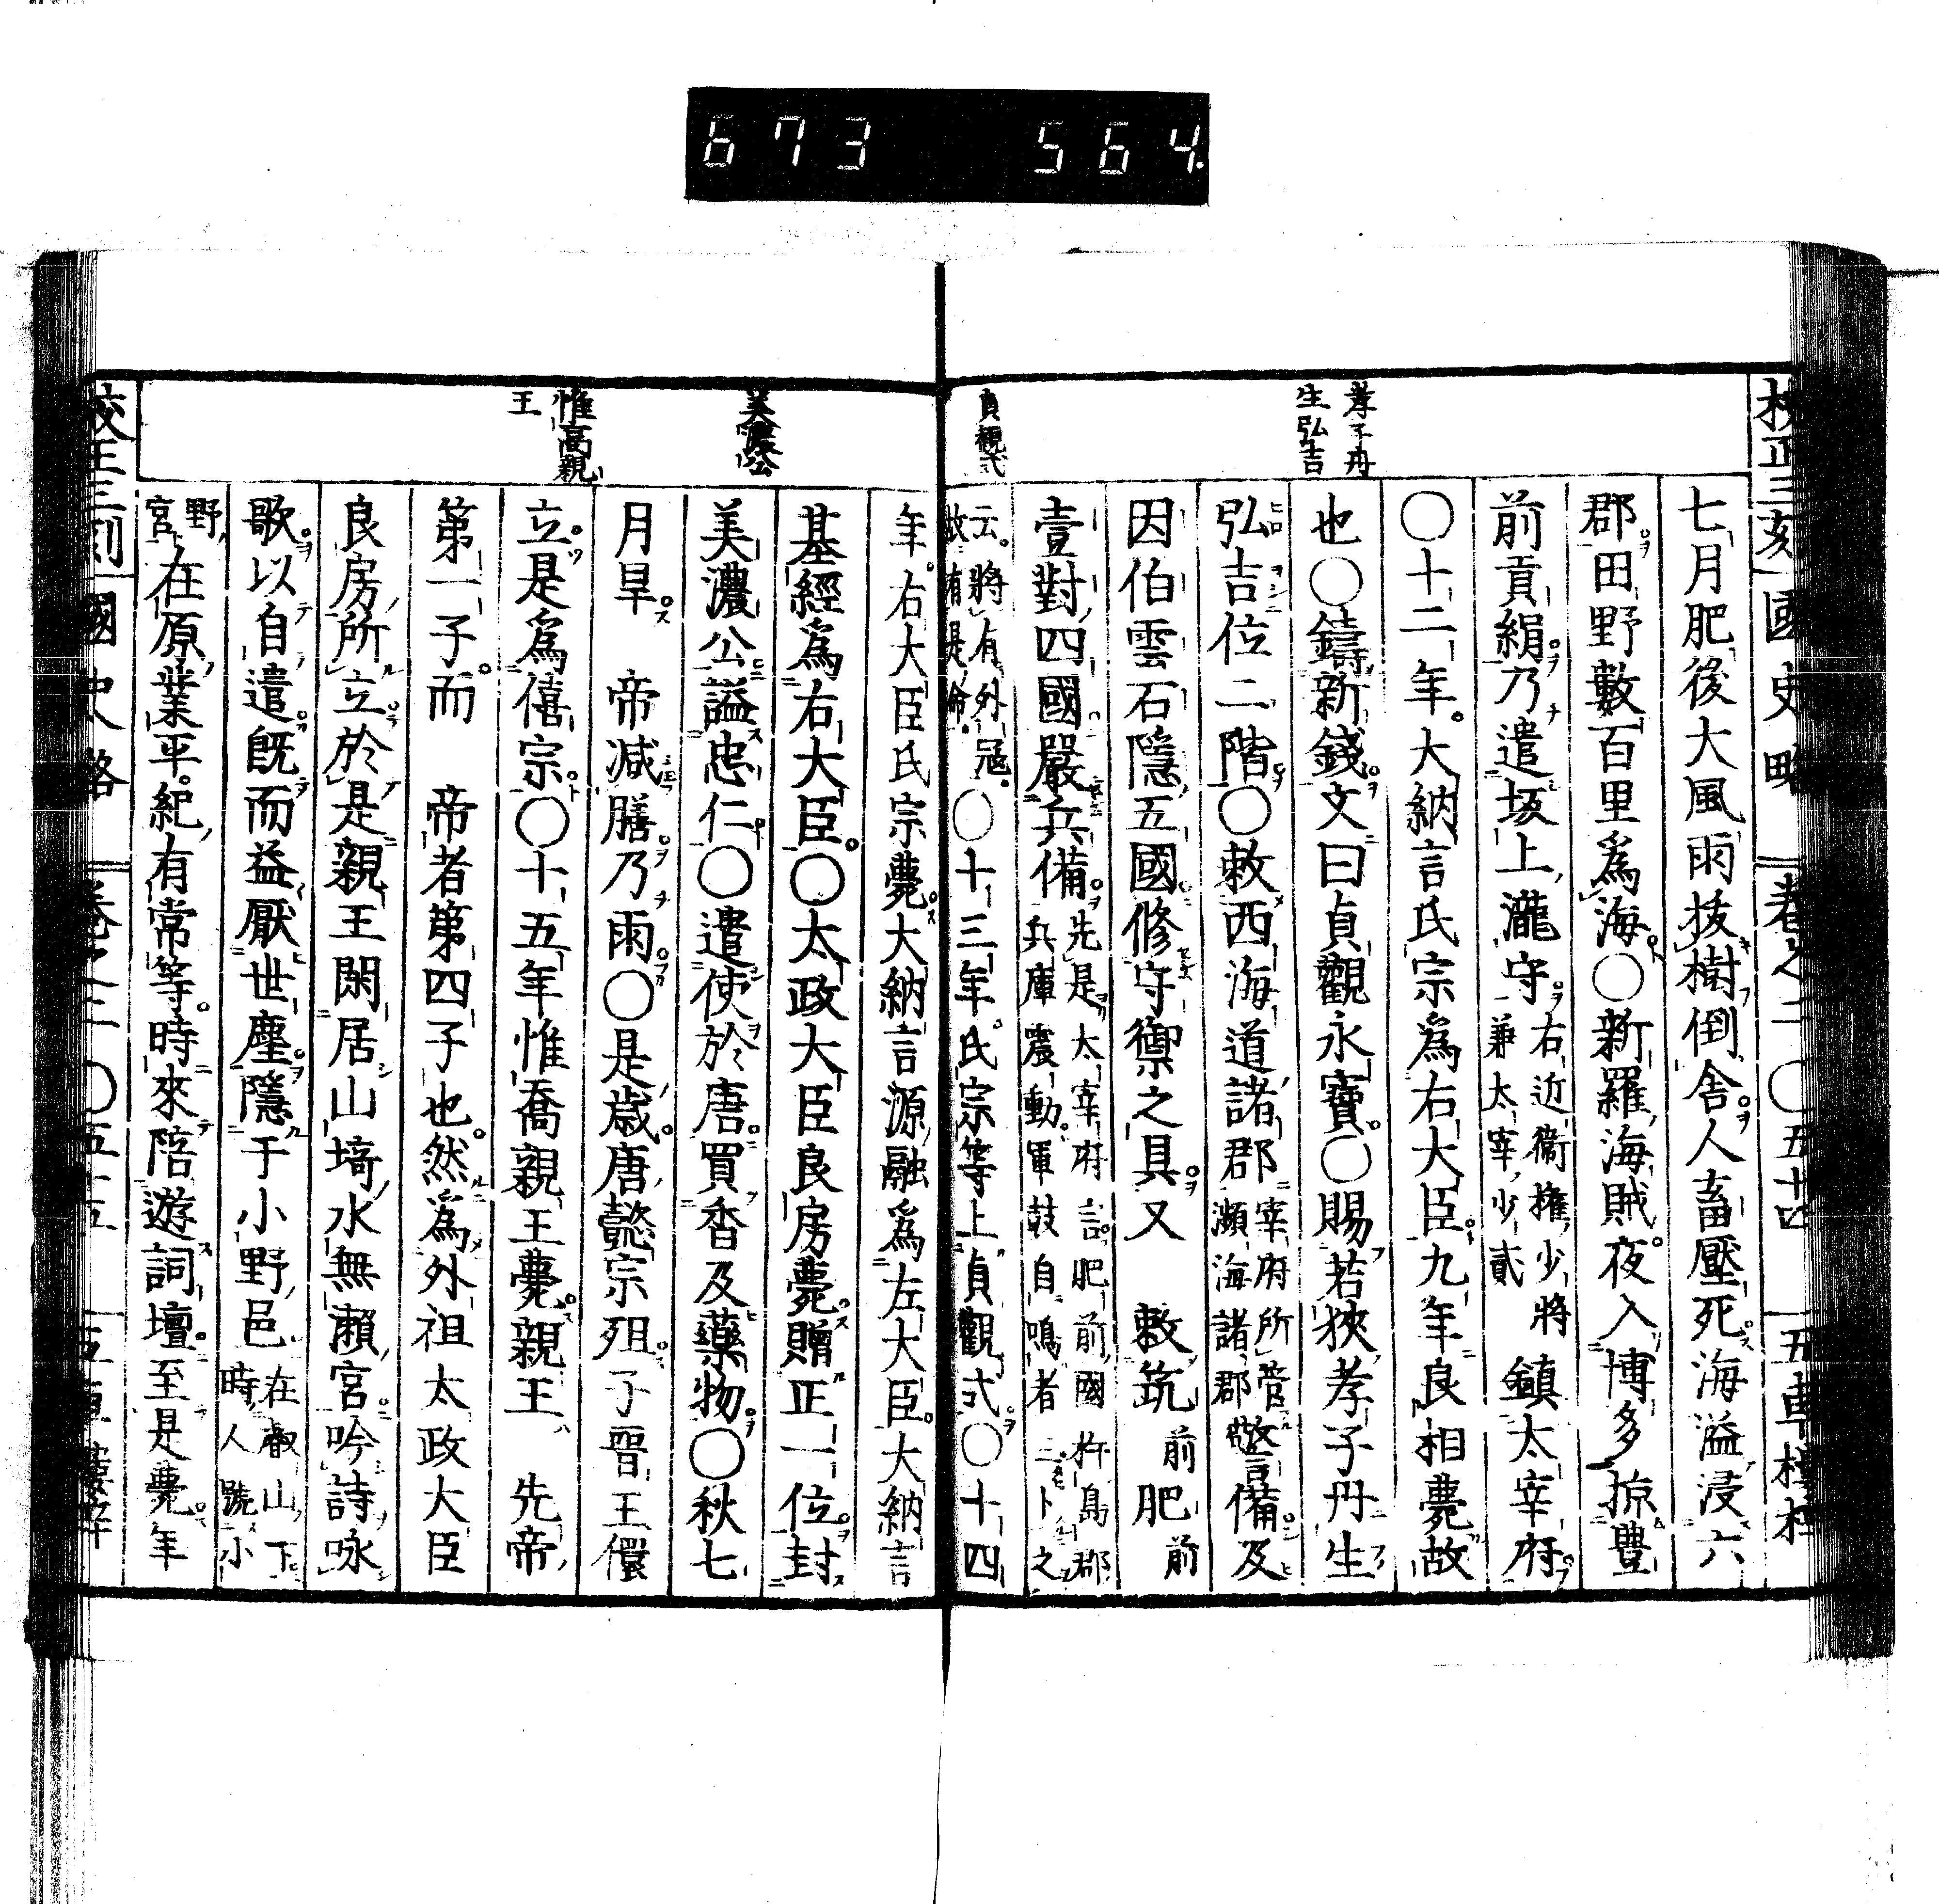 673 564
校正三刻 國史略 卷之二 〇五十四 五車樓梓
孝子丹
生弘吉
貞觀式
七月肥後大風雨拔樹倒舍人畜壓死海溢浸六
郡田野數百里爲海〇新羅海賊夜入博多掠豐
前貢絹乃遣坂上瀧守右近衞權少將兼太宰少貳鎮太宰府
〇十二年大納言氏宗爲右大臣九年良相薨故
也〇鑄新錢文曰貞觀永寶〇賜若狹孝子丹生
弘吉位二階〇敕西海道諸郡宰府所管瀕海諸郡警備及
因伯雲石隱五國修守禦之具又 敕筑前肥前
壹對四國嚴兵備先是太宰府言肥前國杵島郡兵庫震動軍鼓自鳴者二卜之
云將有外冦故有是命〇十三年氏宗等上貞觀式〇十四
美濃公
惟高親
王
年右大臣氏宗薨大納言源融爲左大臣大納言
基經爲右大臣〇太政大臣良房薨贈正一位封
美濃公謚忠仁〇遣使於唐買香及藥物〇秋七
月旱 帝减膳乃雨〇是歳唐懿宗殂子晋王儇
立是爲僖宗〇十五年惟喬親王薨親王 先帝
第一子而 帝者第四子也然爲外祖太政大臣
良房所立於是親王閑居山埼水無瀬宮吟詩咏
歌以自遣既而益厭世塵隱于小野邑在叡山下時人號小
野宮在原業平紀有常等時來陪遊詞壇至是薨年
校正三刻 國史略 卷之二 〇五十五 五車樓梓